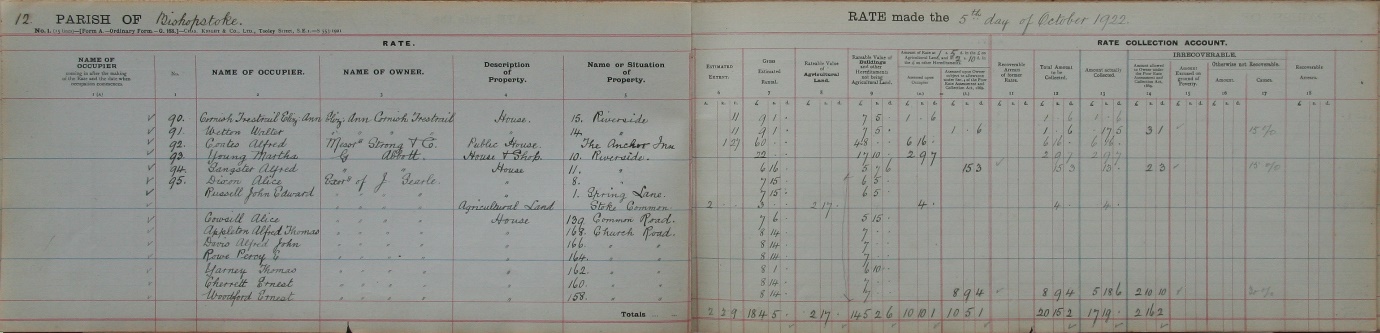 12. PARISH OF Bishopstoke.
RATE made the 5th day of October 1922.
RATE.
RATE COLLECTION ACCOUNT.
NAME OF OCCUPIER
No.
NAME OF OCCUPIER.
NAME OF OWNER.
Description of Property.
Name or Situation of Property.
ESTIMATED EXTENT.
Gross Estimated Rental.
Rateable Value of Agricultural Land.
Rateable Value of Buildings and other Hereditaments not being Agricultural Land.
Recoverable Arrears of former Rates.
Total Amount to be Collected.
Amount actually Collected.
IRRECOVERABLE.
Otherwise not Recoverable.
Amount.
Causes.
Recoverable Arrears.
90. Cornish Trestrail Eliz. Ann Eliz. Ann Cornish Trestrail House. 15. Riverside 11 9 1 7 5 1 6 1 6 1 6
91. Wetton Walter " " " " 14. " 11 9 1 7 5 1 6 1 6 17 5 3 1 15 %
92. Coates Alfred Messrs Strong & Co. Public House. The Anchor Inn 1 27 60 48 6 16 6 16 6 16
93. Young Martha G Abbott. House & Shop. 10. Riverside. 22 17 10 2 9 7 2 9 7 2 9 7
94. Sangster Alfred " " House 11. " 6 16 5 7 6 15 3 15 3 13 2 3 15 %
95. Dixon Alice Exors of J. Searle. " 8. " 7 15 6 5
Russell John Edward " " " " 1. Spring Lane. 7 15 6 5
Agricultural Land Stoke Common 2 3 2 17 4 4 4
Cowsill Alice " " " House 139 Common Road. 7 6 5 15
Appleton Alfred Thomas " " " " 168. Church Road. 8 14 7
Davis Alfred John " " " " 166. " 8 14 7
Rowe Percy " " " " 164. " 8 14 7
Varney Thomas " " " " 162 " 8 1 6 10
Cherrett Ernest " " " " 160. " 8 14 7
Woodford Ernest " " " " 158. " 8 14 7 8 9 4 8 9 4 5 18 6 2 10 10
Totals 2 2 9 184 5 2 17 145 2 6 10 10 1 10 5 1 20 15 2 17 19 2 16 2